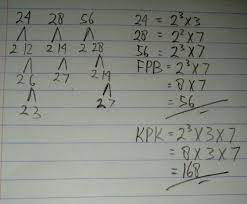 24 28 56
2 12 2 14 2 28
2 6 2 7 2 14
2 3 2 7
24 = 2³ × 3
28 = 2² × 7
56 = 2³ × 7
FPB = 2³ × 7
= 8 × 7
= 56
KPK = 2³ × 3 × 7
= 8 × 3 × 7
= 168